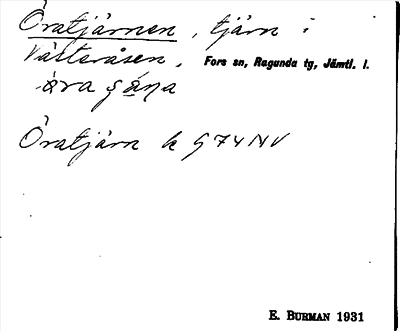 Öratjärnen, tjärn i
Västeråsen. Fors sn, Ragunda tg, Jämtl. l.
Öratjärn k G 74 NV
E. BURMAN 1931